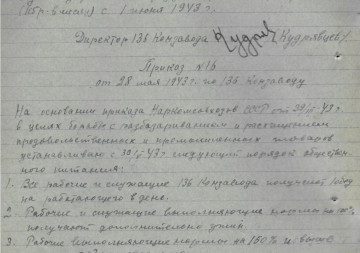 с 1 июня 1943 г.
Директор 136 Конзавода Кудряв (Кудрявцев)
Приказ № 16
от 28 мая 1943 г. по 136 Конзаводу
На основании приказа Наркомсовхозов СССР от
в целях борьбы с разбазариванием и расхищением
продовольственных и промышленных товаров
устанавливаю с 43 г. следующий порядок обществен
ного питания.
1. Все рабочие и служащие 136 Конзавода получают обед
на работающего в день.
2. Рабочие и служащие выполняющие нормы на
получают дополнительно ужин.
3. Рабочие выполняющие нормы до 150% и выше